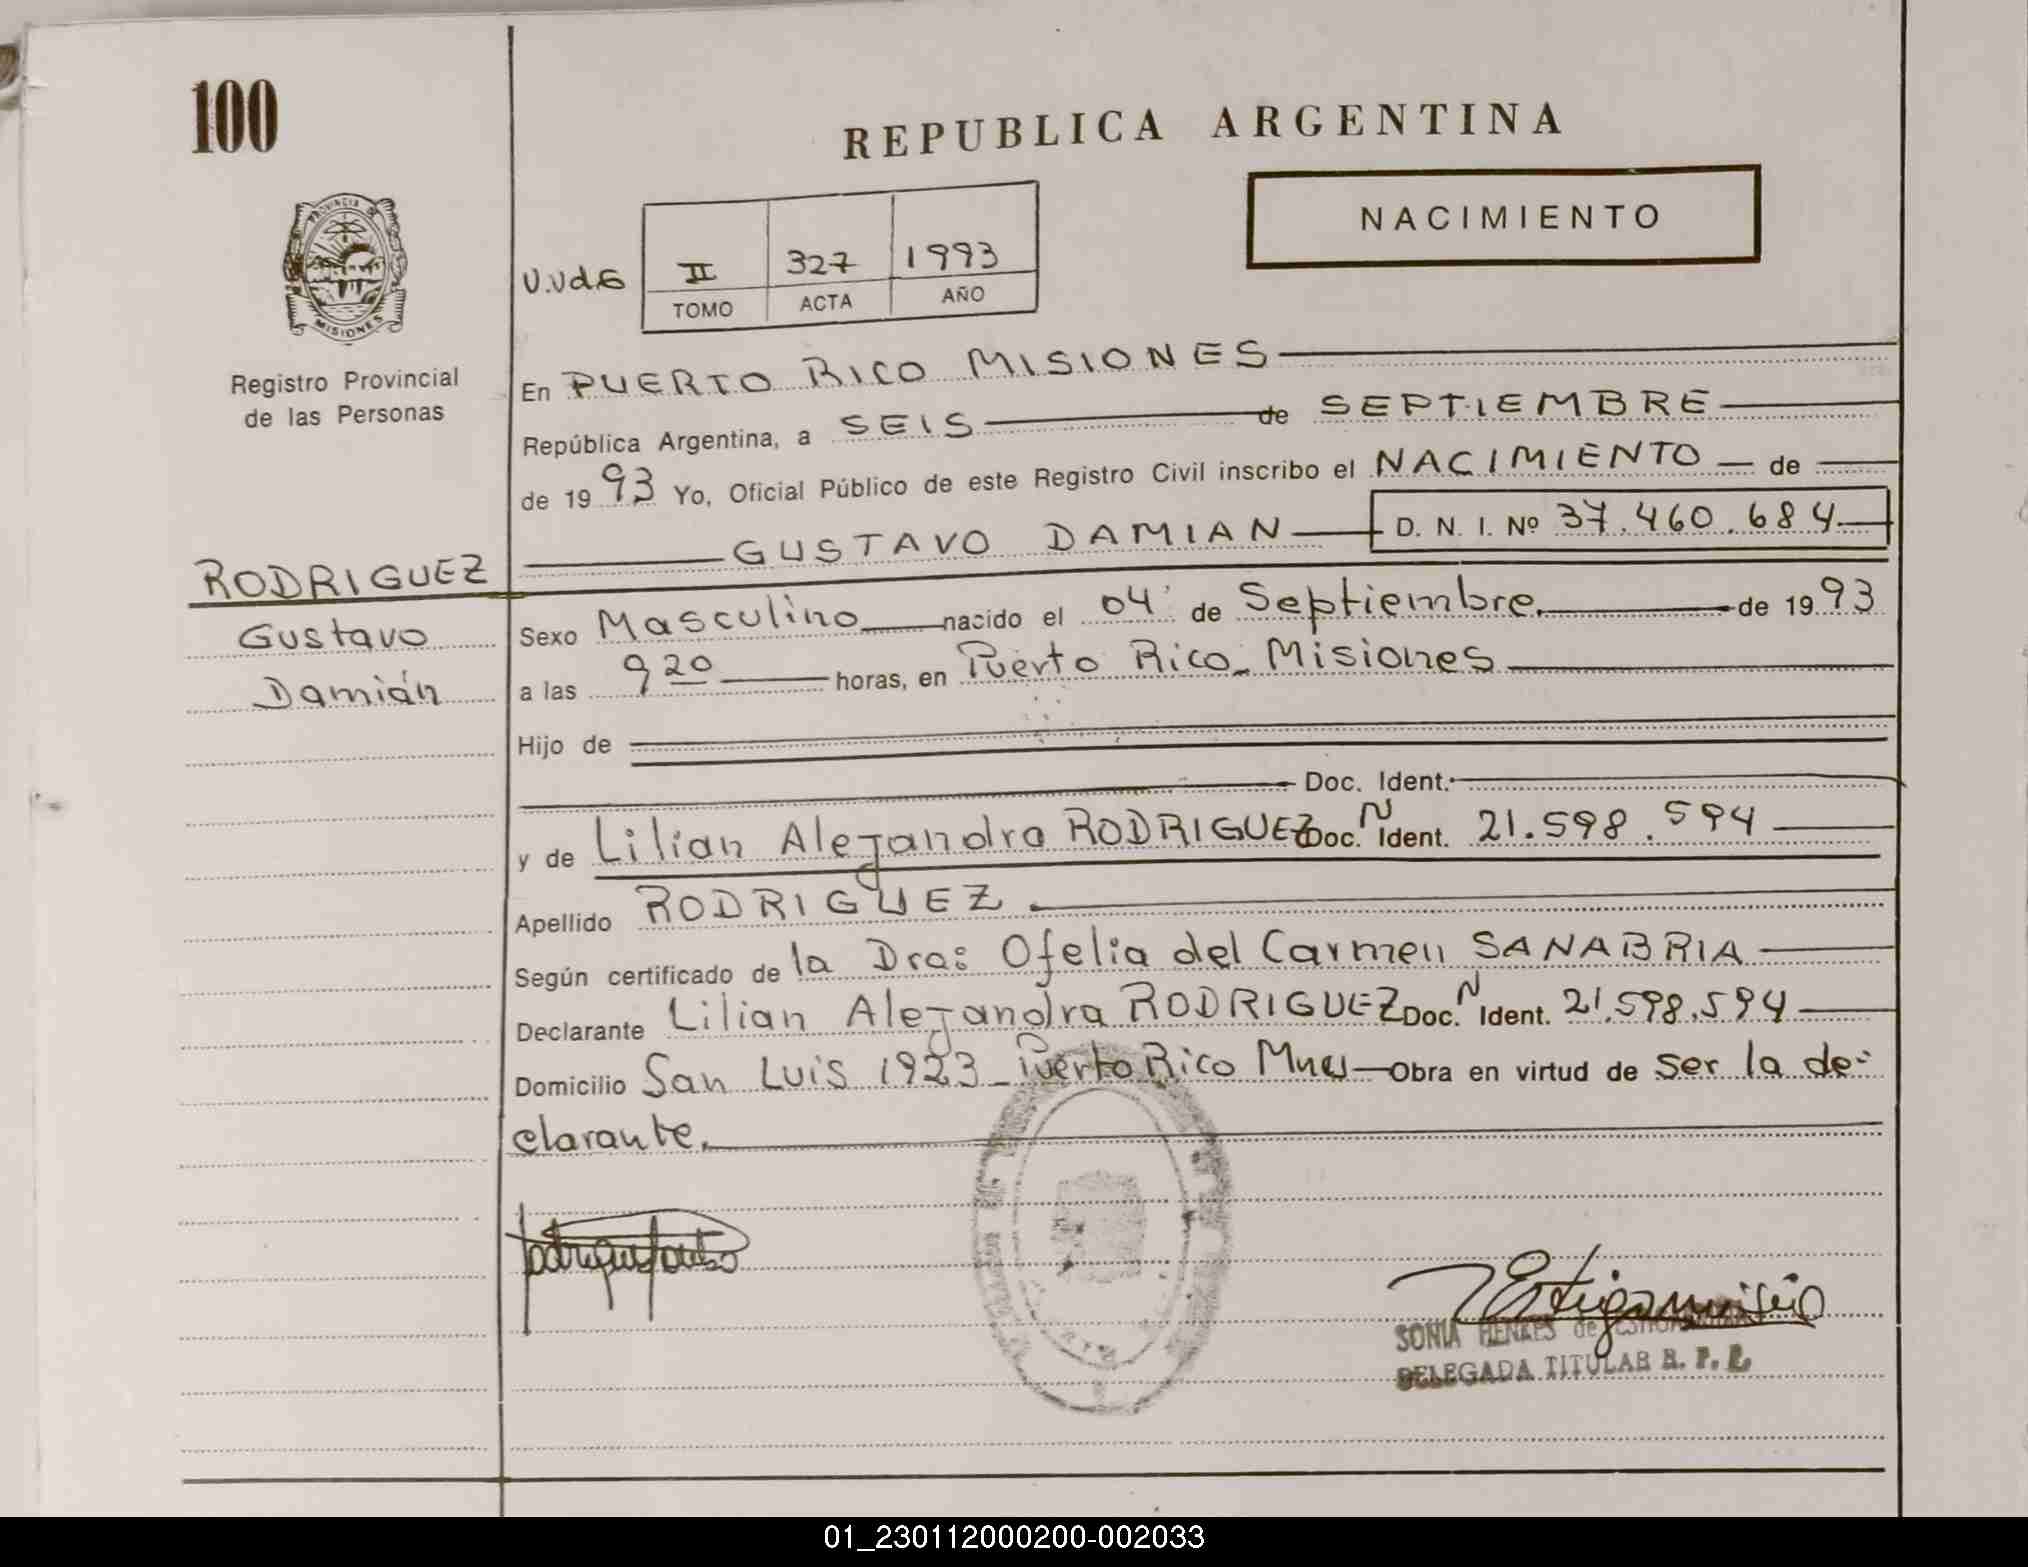 100
REPUBLICA ARGENTINA
NACIMIENTO
PROVINCIA DE
MISIONES
Registro Provincial
de las Personas
II 327 1993
TOMO ACTA AÑO
En PUERTO RICO MISIONES
República Argentina, a SEIS de SEPTIEMBRE
de 1993 Yo, Oficial Público de este Registro Civil inscribo el NACIMIENTO de
GUSTAVO DAMIAN D. N. I. Nº 37.460.684
RODRIGUEZ
Gustavo
Damián
Sexo Masculino nacido el 04 de Septiembre. de 1993
a las 9 20 horas, en Puerto Rico Misiones
Hijo de
Doc. Ident.
y de Lilian Alejandra RODRIGUEZ Doc. N Ident. 21.598.594
Apellido RODRIGUEZ
Según certificado de la Dra: Ofelia del Carmen SANABRIA
Declarante Lilian Alejandra RODRIGUEZ Doc. N Ident. 21.598.594
Domicilio San Luis 1923 Puerto Rico Mnes Obra en virtud de ser la de-
clarante.
SONIA HENKES de
DELEGADA TITULAR R. P. P.
01_230112000200-002033